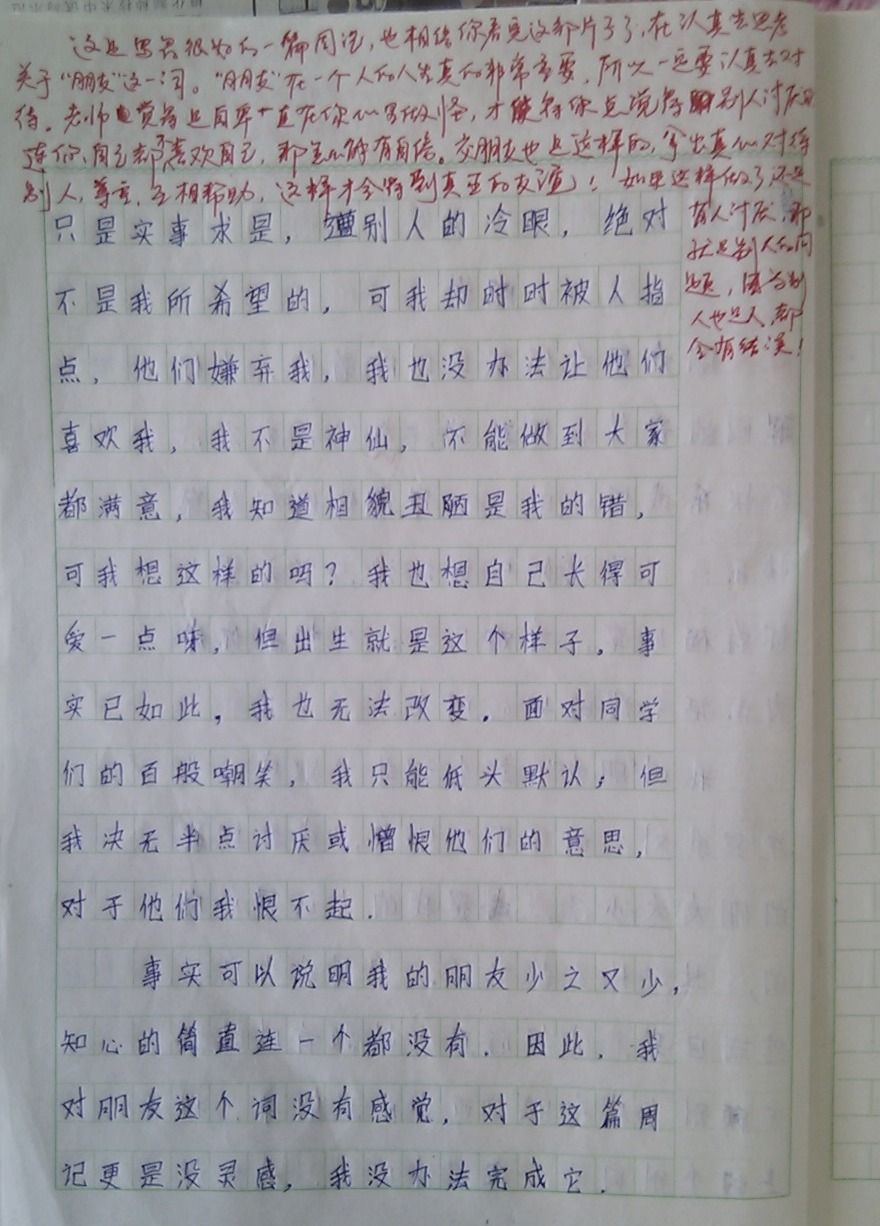 这是写得很好的一篇周记,也相信你看完这部片子了,在认真去思考
关于“朋友”这一词。“朋友”在一个人的人生真的非常重要,所以一定要认真去对
待。老师觉得是自卑一直在你心里做怪,才能令你总觉得别人讨厌
连你自己都不喜欢自己,那怎么能有自信。交朋友也是这样的,拿出真心对待
别人,尊重、互相帮助,这样才会得到真正的友谊!如果这样做了还是
有人讨厌,那
就是别人的问
题,因为别
人也是人,都
会有缺点!
只是实事求是,遭别人的冷眼,绝对
不是我所希望的,可我却时时被人指
点,他们嫌弃我,我也没办法让他们
喜欢我,我不是神仙,不能做到大家
都满意,我知道相貌丑陋是我的错,
可我想这样的吗?我也想自己长得可
爱一点味,但出生就是这个样子,事
实已如此,我也无法改变.面对同学
们的百般嘲笑,我只能低头默认;但
我决无半点讨厌或憎恨他们的意思,
对于他们我恨不起.
事实可以说明我的朋友少之又少,
知心的简直连一个都没有.因此,我
对朋友这个词没有感觉,对于这篇周
记更是没灵感,我没办法完成它.